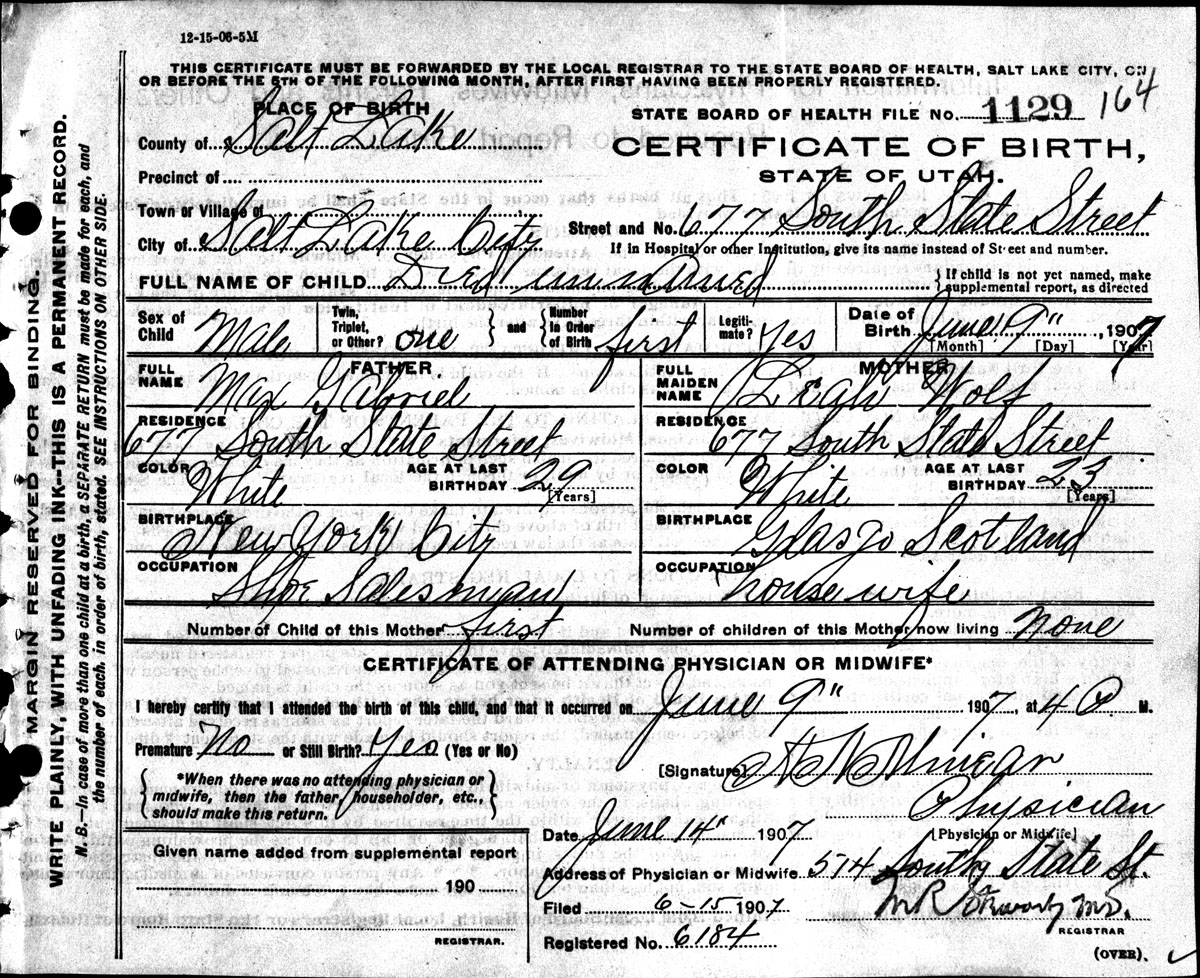 12-15-06-5M
THIS CERTIFICATE MUST BE FORWARDED BY THE LOCAL REGISTRAR TO THE STATE BOARD OF HEALTH, SALT LAKE CITY, ON
OR BEFORE THE 5TH OF THE FOLLOWING MONTH, AFTER FIRST HAVING BEEN PROPERLY REGISTERED.
MARGIN RESERVED FOR BINDING.
WRITE PLAINLY, WITH UNFADING INK—THIS IS A PERMANENT RECORD.
N. B.—In case of more than one child at a birth, a SEPARATE RETURN must be made for each, and
the number of each, in order of birth, stated. SEE INSTRUCTIONS ON OTHER SIDE.
PLACE OF BIRTH
STATE BOARD OF HEALTH FILE No. 1129 164
County of Salt Lake
CERTIFICATE OF BIRTH,
STATE OF UTAH.
Precinct of
Town or Village of
City of Salt Lake City
Street and No. 677 South State Street
If in Hospital or other Institution, give its name instead of Street and number.
FULL NAME OF CHILD Died unnamed
If child is not yet named, make
supplemental report, as directed
Sex of Child Male
Twin, Triplet, or Other? one
and
Number in Order of Birth first
Legiti-mate? Yes
Date of Birth June 9", 1907
[Month] [Day] [Year]
FATHER.
FULL NAME Max Gabriel
RESIDENCE 677 South State Street
COLOR White
AGE AT LAST BIRTHDAY 29
[Years]
BIRTHPLACE New York City
OCCUPATION Shoe Salesman
MOTHER
FULL MAIDEN NAME Leah Wolf
RESIDENCE 677 South State Street
COLOR White
AGE AT LAST BIRTHDAY 23
[Years]
BIRTHPLACE Glasgo Scotland
OCCUPATION housewife
Number of Child of this Mother first
Number of children of this Mother now living none
CERTIFICATE OF ATTENDING PHYSICIAN OR MIDWIFE*
I hereby certify that I attended the birth of this child, and that it occurred on June 9" 1907, at 4 P. M.
Premature No or Still Birth? Yes (Yes or No)
[Signature]
*When there was no attending physician or
midwife, then the father, householder, etc.,
should make this return.
Physician
[Physician or Midwife]
Date June 14" 1907
Given name added from supplemental report
190
REGISTRAR.
Address of Physician or Midwife 514 South State St.
Filed 6-15 1907
M.D.
REGISTRAR
Registered No. 6184
(OVER).